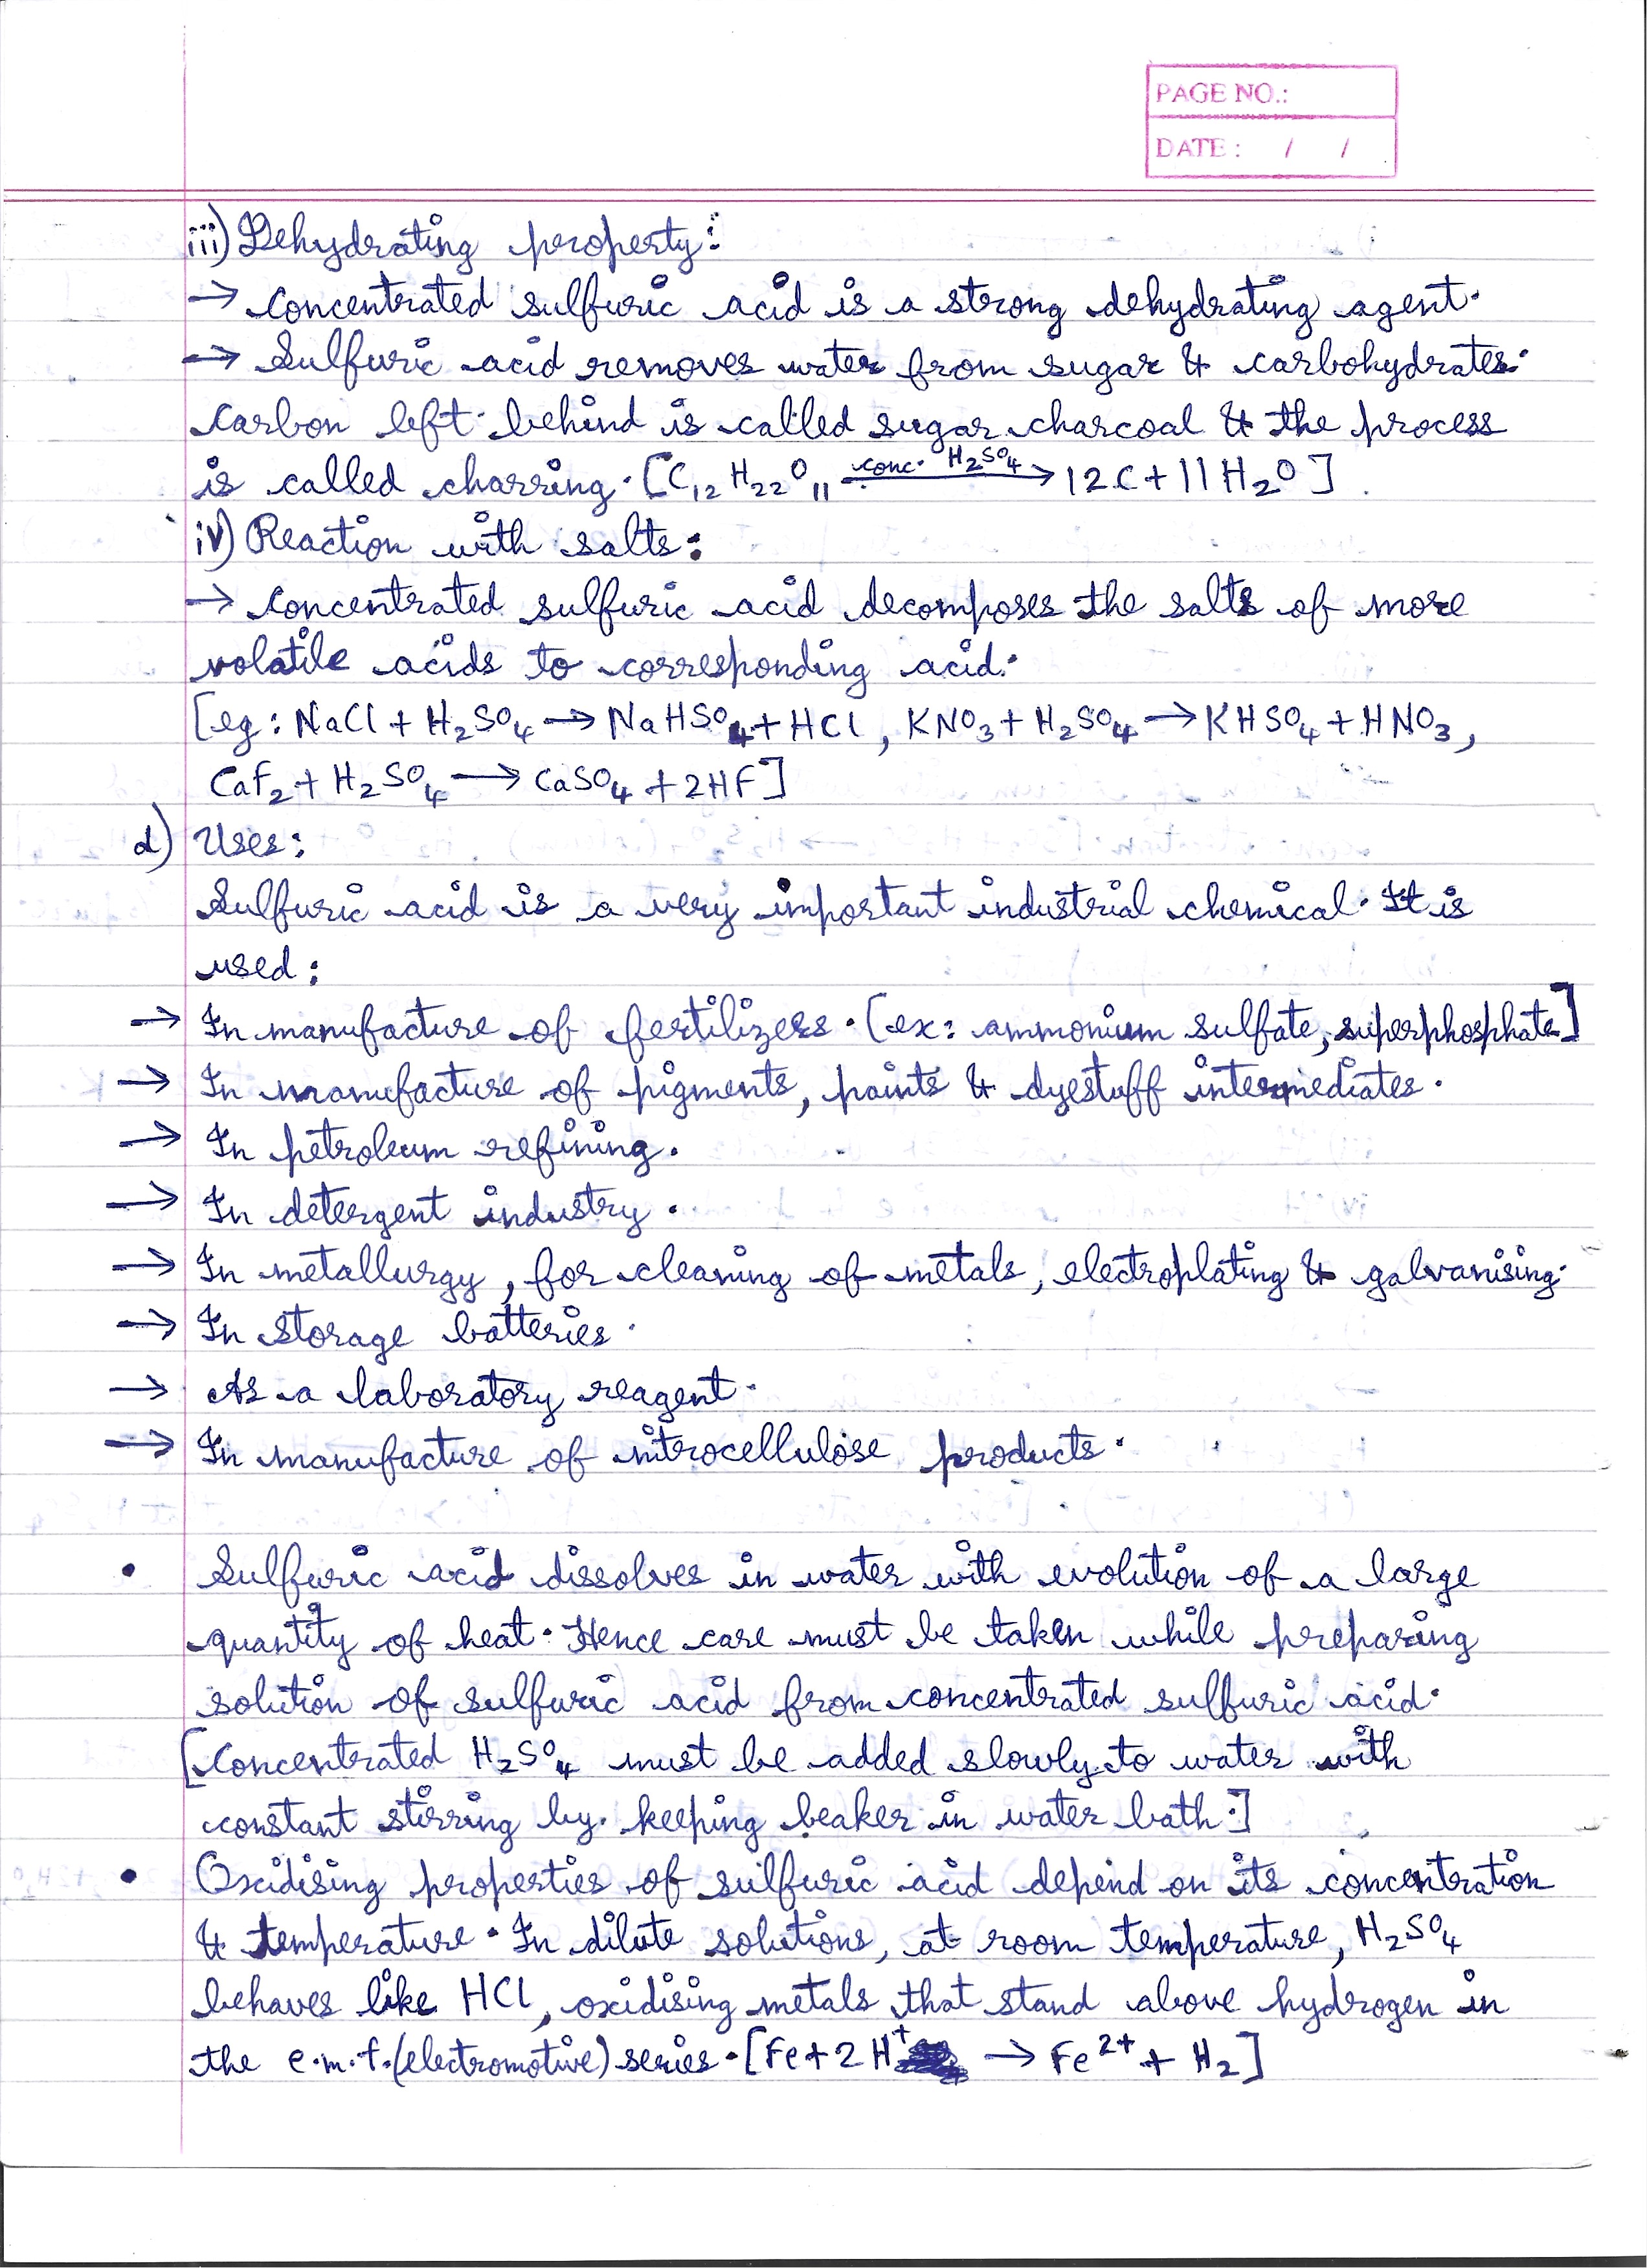 PAGE NO.:
DATE : / /
iii) Dehydrating property:
→ Concentrated sulfuric acid is a strong dehydrating agent.
→ Sulfuric acid removes water from sugar & carbohydrates.
Carbon left behind is called sugar charcoal & the process
is called charring. [C₁₂H₂₂O₁₁ —conc. H₂SO₄→ 12C + 11H₂O]
iv) Reaction with salts:
→ Concentrated sulfuric acid decomposes the salts of more
volatile acids to corresponding acid.
[eg: NaCl + H₂SO₄ → NaHSO₄ + HCl, KNO₃ + H₂SO₄ → KHSO₄ + HNO₃,
CaF₂ + H₂SO₄ → CaSO₄ + 2HF]
d) Uses:
Sulfuric acid is a very important industrial chemical. It is
used:
→ In manufacture of fertilizers. [ex: ammonium sulfate, superphosphate]
→ In manufacture of pigments, paints & dyestuff intermediates.
→ In petroleum refining.
→ In detergent industry.
→ In metallurgy, for cleaning of metals, electroplating & galvanising.
→ In storage batteries.
→ As a laboratory reagent.
→ In manufacture of nitrocellulose products.
• Sulfuric acid dissolves in water with evolution of a large
quantity of heat. Hence care must be taken while preparing
solution of sulfuric acid from concentrated sulfuric acid.
[Concentrated H₂SO₄ must be added slowly to water with
constant stirring by keeping beaker in water bath.]
• Oxidising properties of sulfuric acid depend on its concentration
& temperature. In dilute solutions, at room temperature, H₂SO₄
behaves like HCl, oxidising metals that stand above hydrogen in
the e.m.f. (electromotive) series. [Fe + 2H⁺ → Fe²⁺ + H₂]